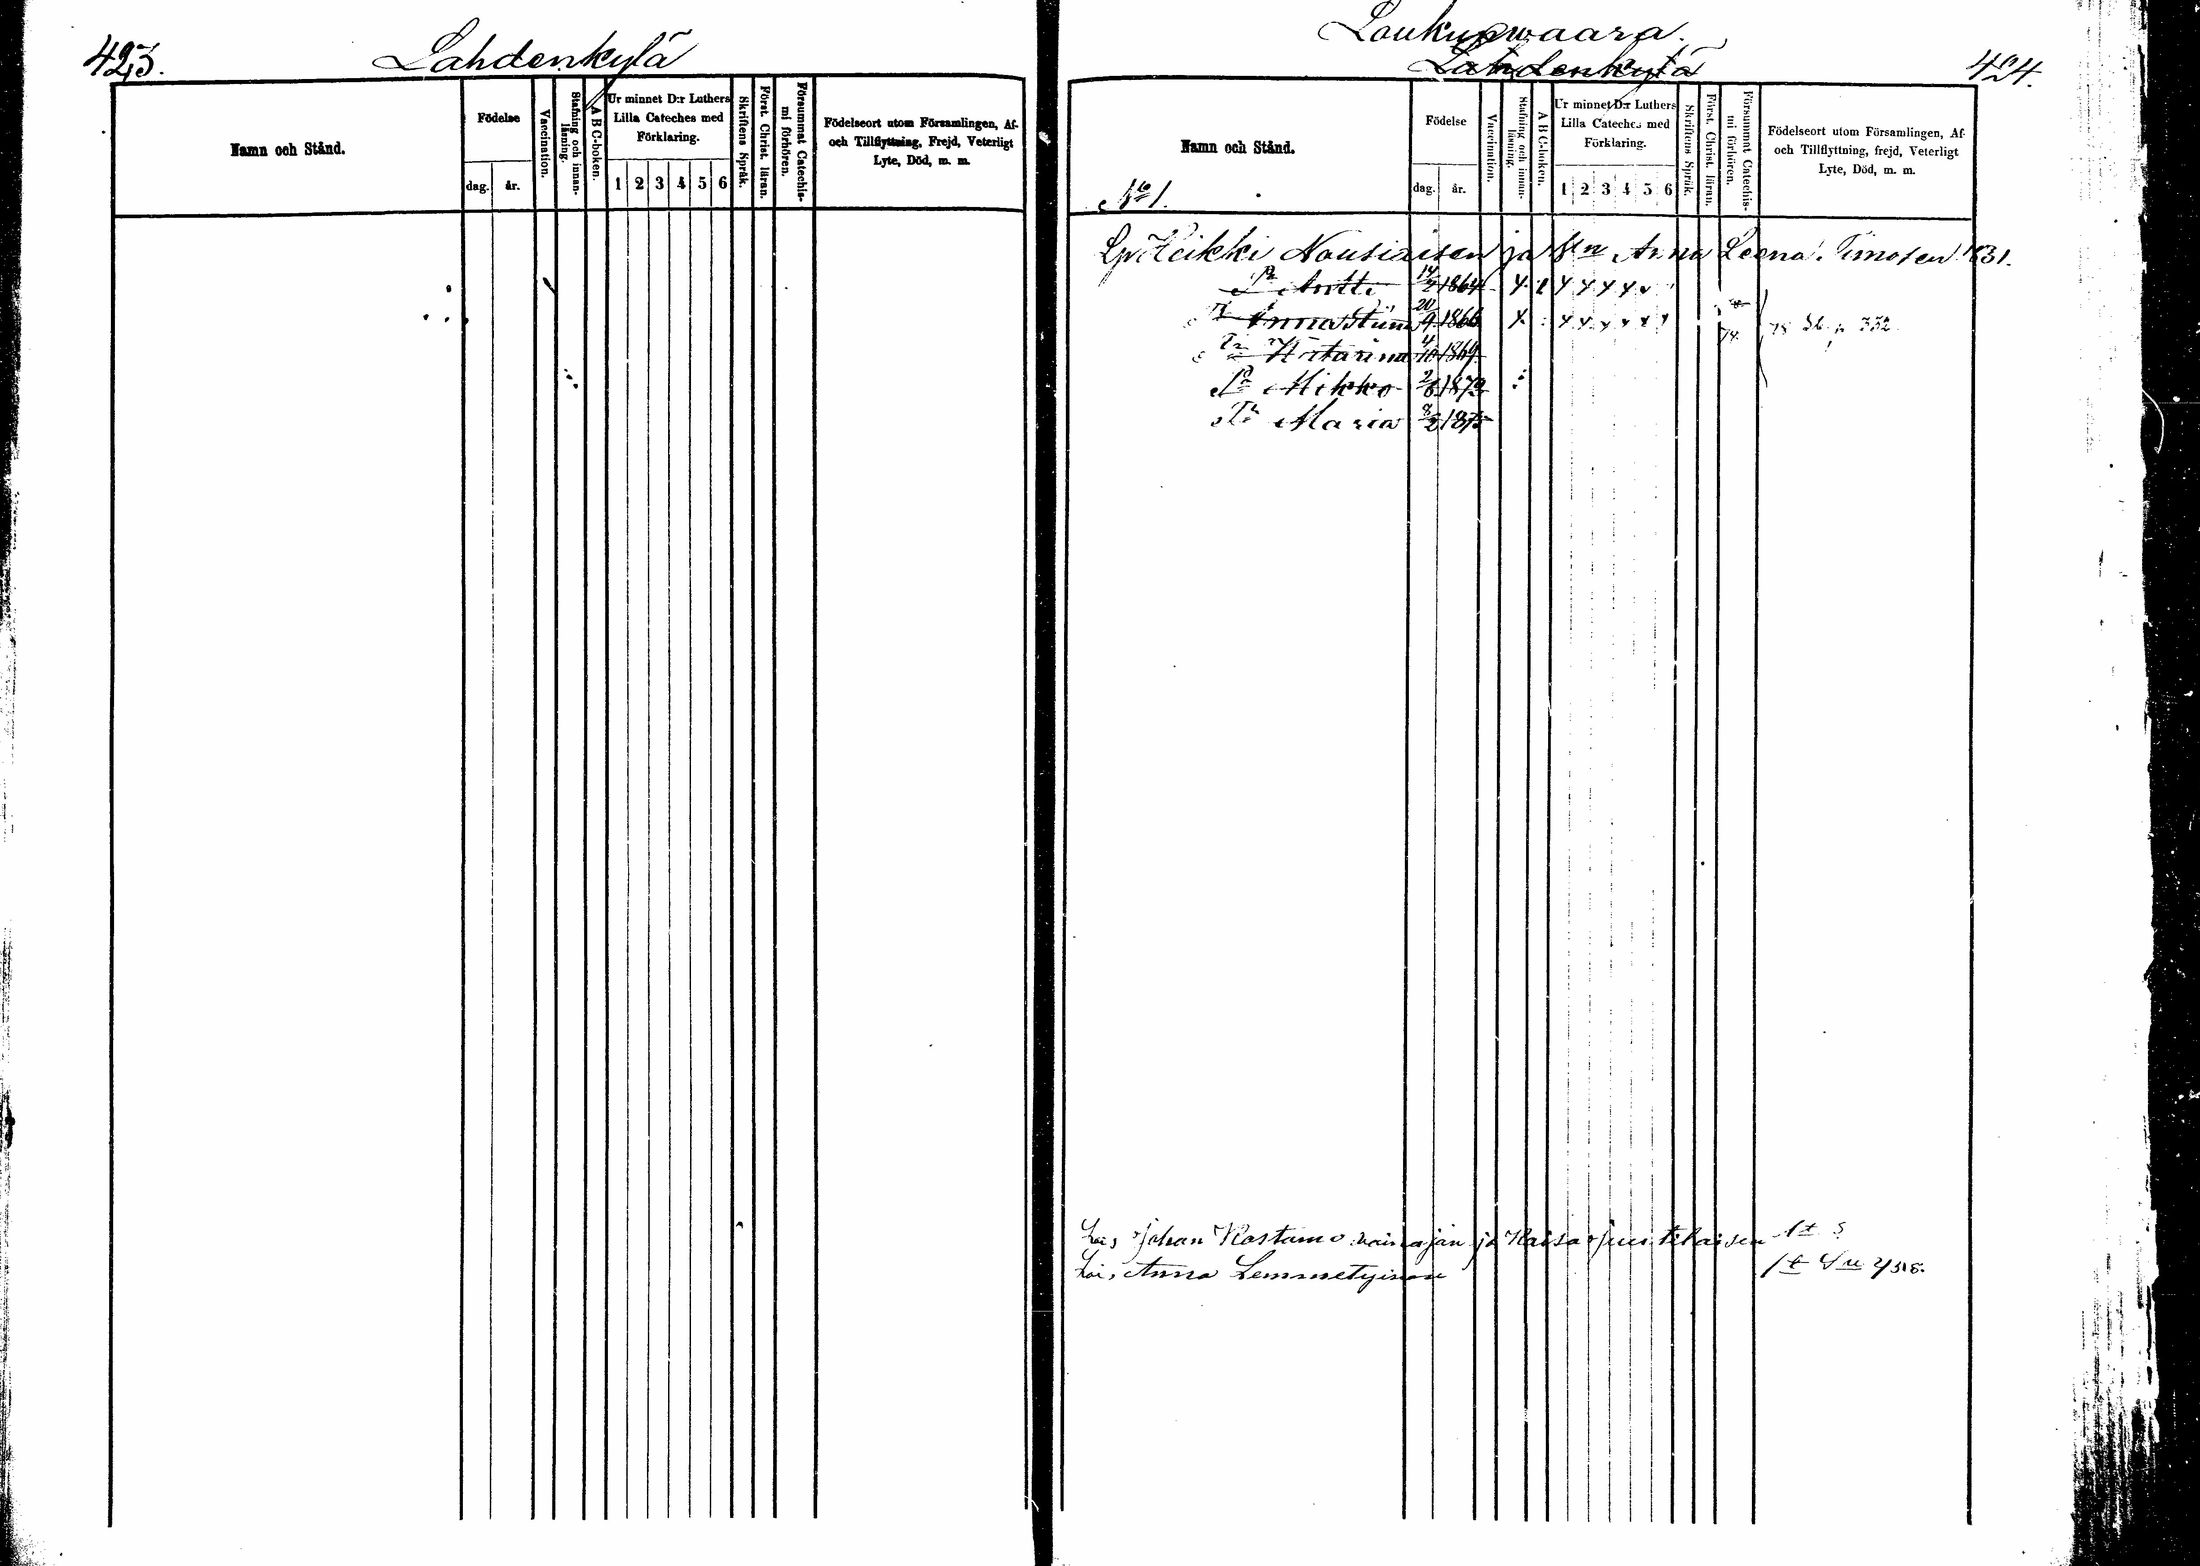 423.
Lahdenkylä
Namn och Stånd.
Födelse
dag.
år.
Vaccination.
Stafning och innan-
läsning.
A B C-boken.
Ur minnet D:r Luthers
Lilla Cateches med
Förklaring.
1 2 3 4 5 6
Skriftens Språk.
Först. Christ. läran.
Försummat Catechis-
mi förhören.
Födelseort utom Församlingen, Af-
och Tillflyttning, Frejd, Veterligt
Lyte, Död, m. m.
Loukunwaara.
Lahdenkylä
424.
Namn och Stånd.
No 1.
Födelse
dag.
år.
Vaccination.
Stafning och innan-
läsning.
A B C-boken.
Ur minnet D:r Luthers
Lilla Cateches med
Förklaring.
1 2 3 4 5 6
Skriftens Språk.
Först. Christ. läran.
Försummat Catechis-
mi förhören.
Födelseort utom Församlingen, Af-
och Tillflyttning, frejd, Veterligt
Lyte, Död, m. m.
Lp. Heikki Nousiaisen ja Anna Leena Timosen 1831.
Pa Antti 14/2 1864
Tr Anna Stiina 20/9 1866 p. 332
Tr Katarina 4/10 1869
Pa Mikko 2/6 1872
Tr Maria 8/2 1875
Johan Kostamo vainajan ja Kaisa Puustikaisen
Anna Lemmetyinen